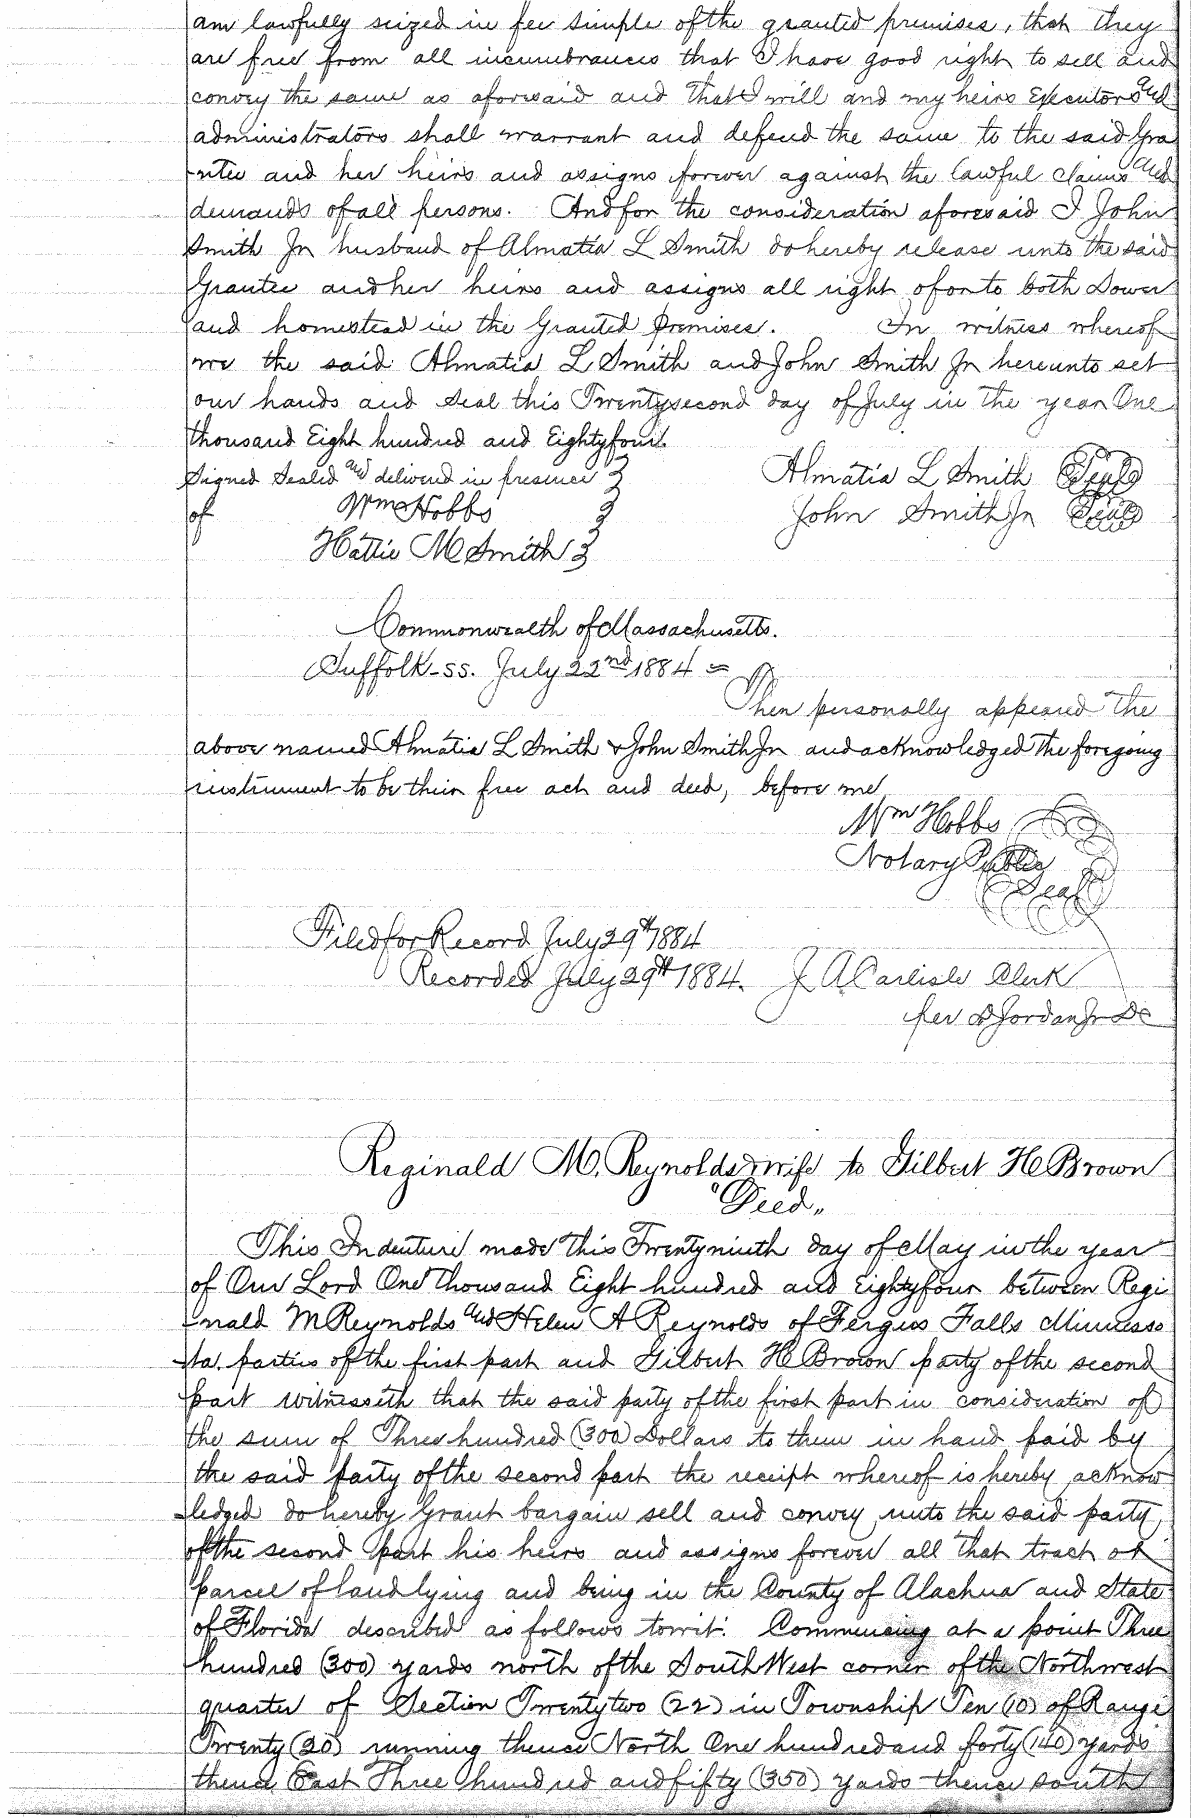 am lawfully seized in fee simple of the granted premises, that they
are free from all incumbrances that I have good right to sell and
convey the same as aforesaid and that I will and my heirs Executors and
administrators shall warrant and defend the same to the said Gra
-ntee and her heirs and assigns forever against the lawful claims and
demands of all persons. And for the consideration aforesaid I John
Smith Jr husband of Almatia L Smith do hereby release unto the said
Grantee and her heirs and assigns all right of or to both Dower
and homestead in the Granted Premises. In witness whereof
we the said Almatia L Smith and John Smith Jr hereunto set
our hands and seal this Twentysecond day of July in the year One
thousand Eight hundred and Eightyfour.
Signed Sealed and delivered in presence
of Wm Hobbs
Hattie M Smith
Almatia L Smith Seal
John Smith Jr Seal
Commonwealth of Massachusetts.
Suffolk-ss. July 22nd 1884 =
Then personally appeared the
above named Almatia L Smith & John Smith Jr and acknowledged the foregoing
instrument to be their free act and deed, before me
Wm Hobbs
Notary Public
Seal
Filed for Record July 29th 1884
Recorded July 29th 1884. J A Carlisle Clerk
per D Jordan Jr DC
Reginald M. Reynolds & wife to Gilbert H Brown
"Deed„
This Indenture made this Twentyninth day of May in the year
of Our Lord One thousand Eight hundred and Eightyfour between Regi
-nald M Reynolds and Helen A Reynolds of Fergus Falls Minneso
-ta. parties of the first part and Gilbert H Brown party of the second
part witnesseth that the said party of the first part in consideration of
the sum of Three hundred (300) Dollars to them in hand paid by
the said party of the second part the receipt whereof is hereby acknow
-ledged do hereby Grant bargain sell and convey unto the said party
of the second part his heirs and assigns forever all that tract or
parcel of land lying and being in the County of Alachua and State
of Florida described as follows towit: Commencing at a point Three
hundred (300) yards north of the South West corner of the Northwest
quarter of Section Twentytwo (22) in Township Ten (10) of Range
Twenty (20) running thence North One hundred and forty (140) yards
thence East Three hundred and fifty (350) yards thence south